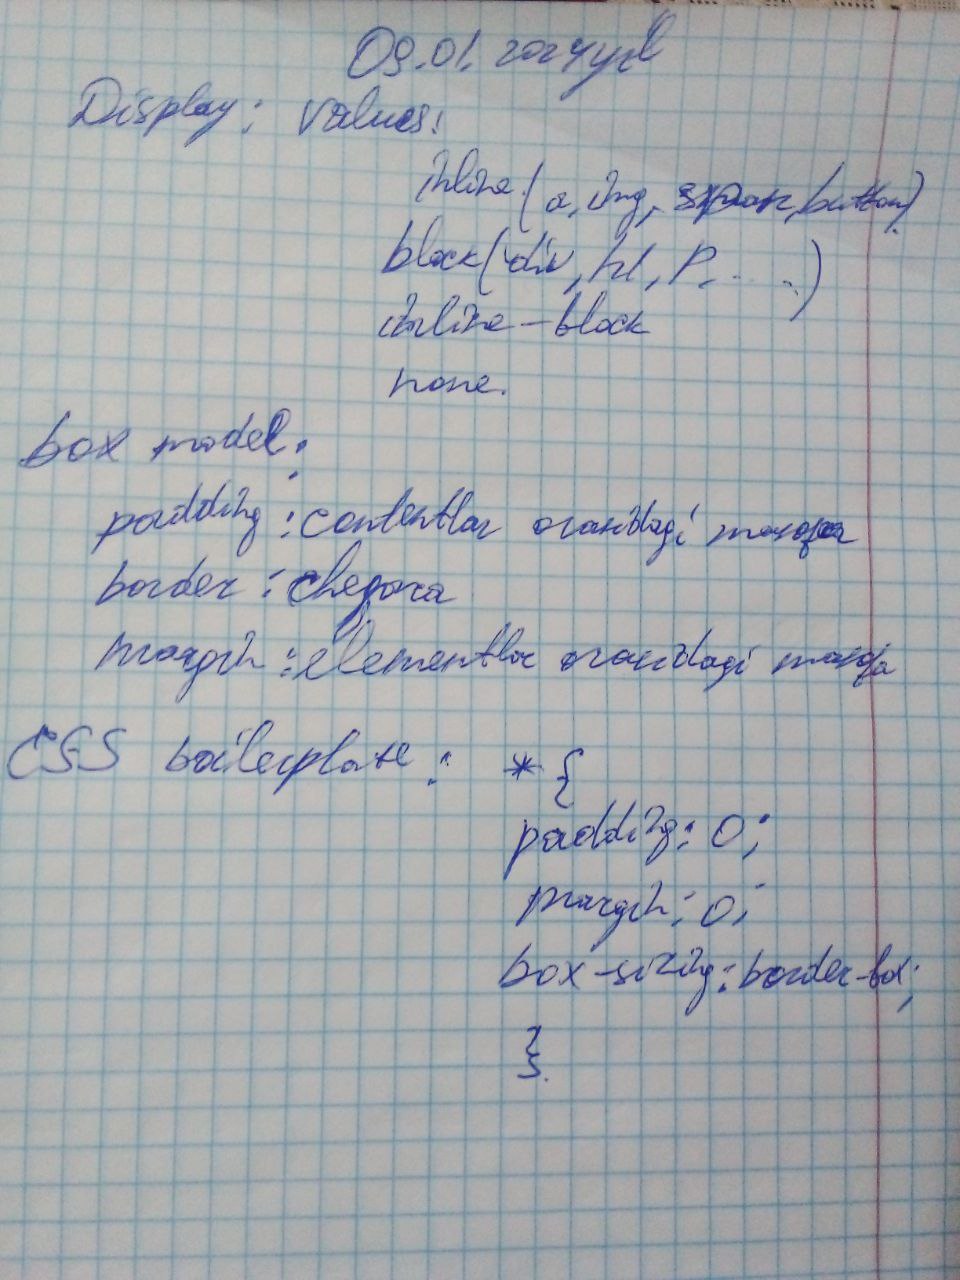 09.01.2024 yil
Display: values:
inline (a, img, span, button)
block (div, h1, p, ......)
inline-block
none.
box model:
padding: contentlar orasidagi masofa
border: chegara
margin: elementlar orasidagi masofa
CSS boilerplate: * {
padding: 0;
margin: 0;
box-sizing: border-box;
}